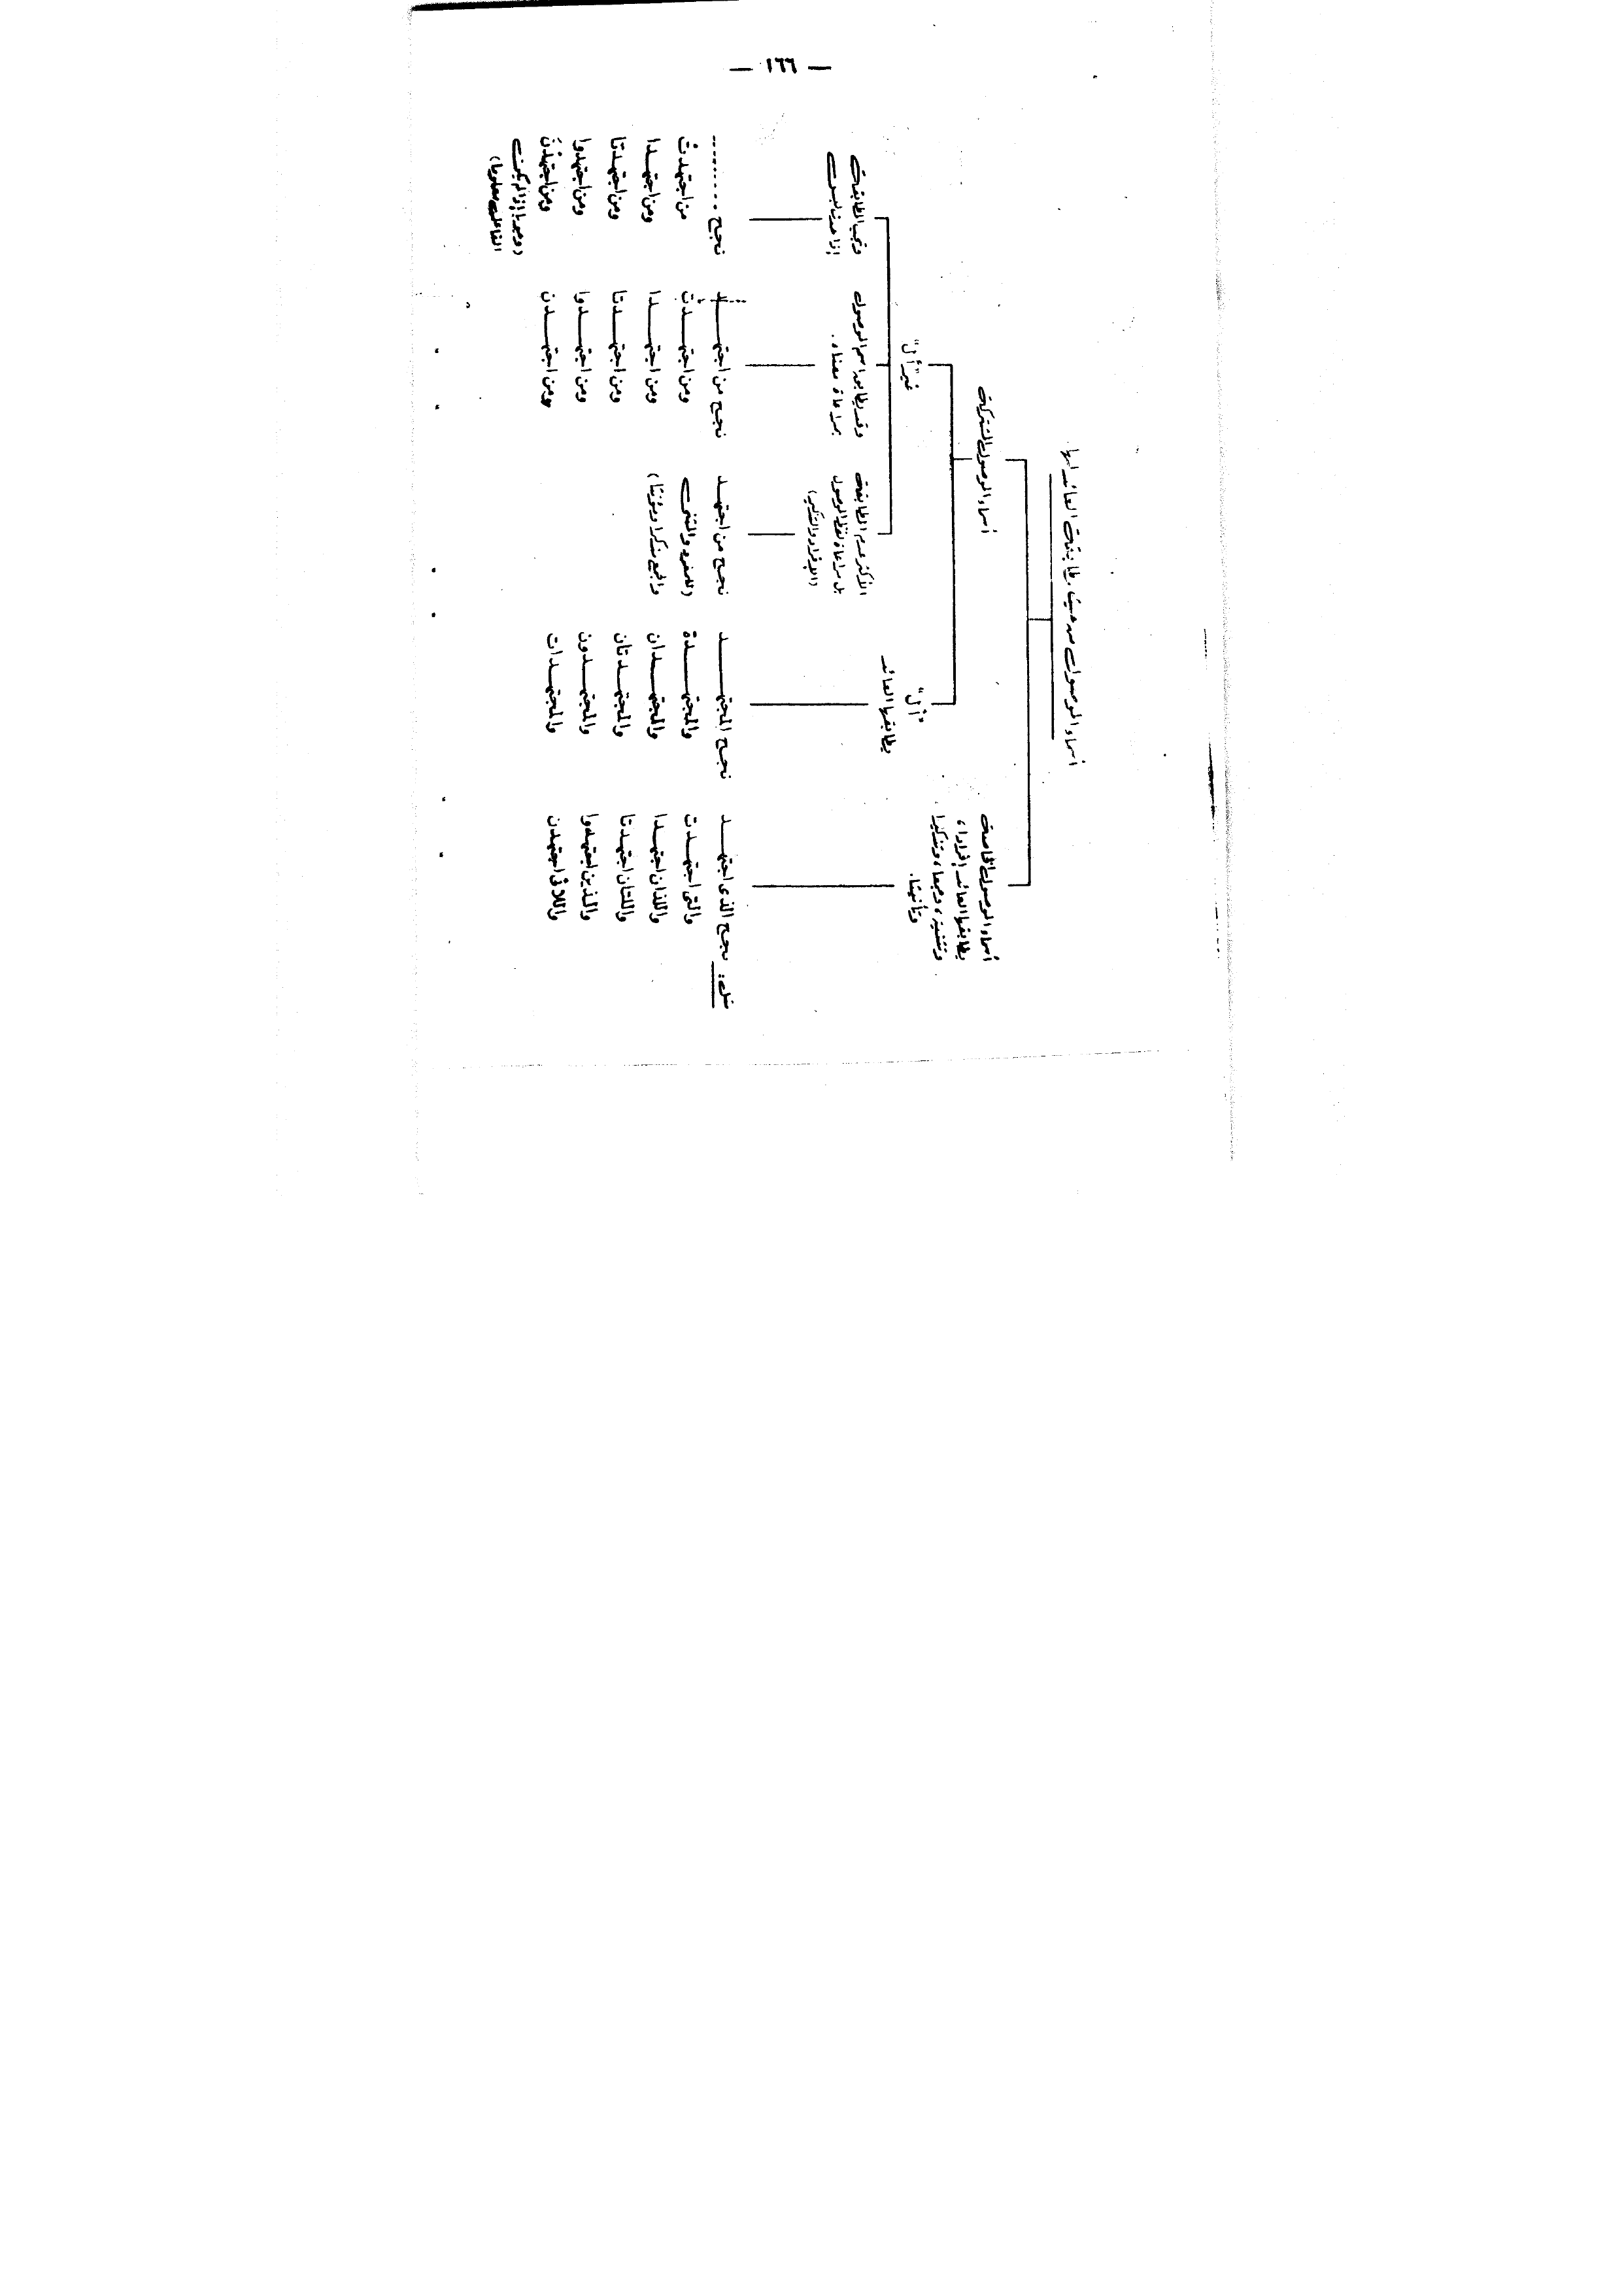 — ١٦٦ —
أسماء الموصول من حيث مطابقة العائد لها
أسماء الموصول الخاصة
يطابقها العائد إفرادا،
وتثنية، وجمعا، وتذكيرا
وتأنيثا.
أسماء الموصول المشتركة
"أل"
يطابقها العائد
غير "أل"
الأكثر عدم المطابقة
بل مراعاة لفظ الموصول
(الإفراد والتذكير)
وقد يطابق اسم الموصول
مراعاة معناه.
وتجب المطابقة
إذا حدث لبس
مثل: نجح الذى اجتهد
والتى اجتهدت
واللذان اجتهدا
واللتان اجتهدتا
والذين اجتهدوا
واللاتى اجتهدن
نجح المجتهد
والمجتهدة
والمجتهدان
والمجتهدتان
والمجتهدون
والمجتهدات
نجح من اجتهد
(للمفرد والمثنى
والجمع مذكرا ومؤنثا)
نجح من اجتهد
ومن اجتهدت
ومن اجتهدا
ومن اجتهدتا
ومن اجتهدوا
ومن اجتهدن
نجح ........
من اجتهدت
ومن اجتهدا
ومن اجتهدتا
ومن اجتهدوا
ومن اجتهدن
(وجوبا إذا لم يكن
الفاعل معلوما)